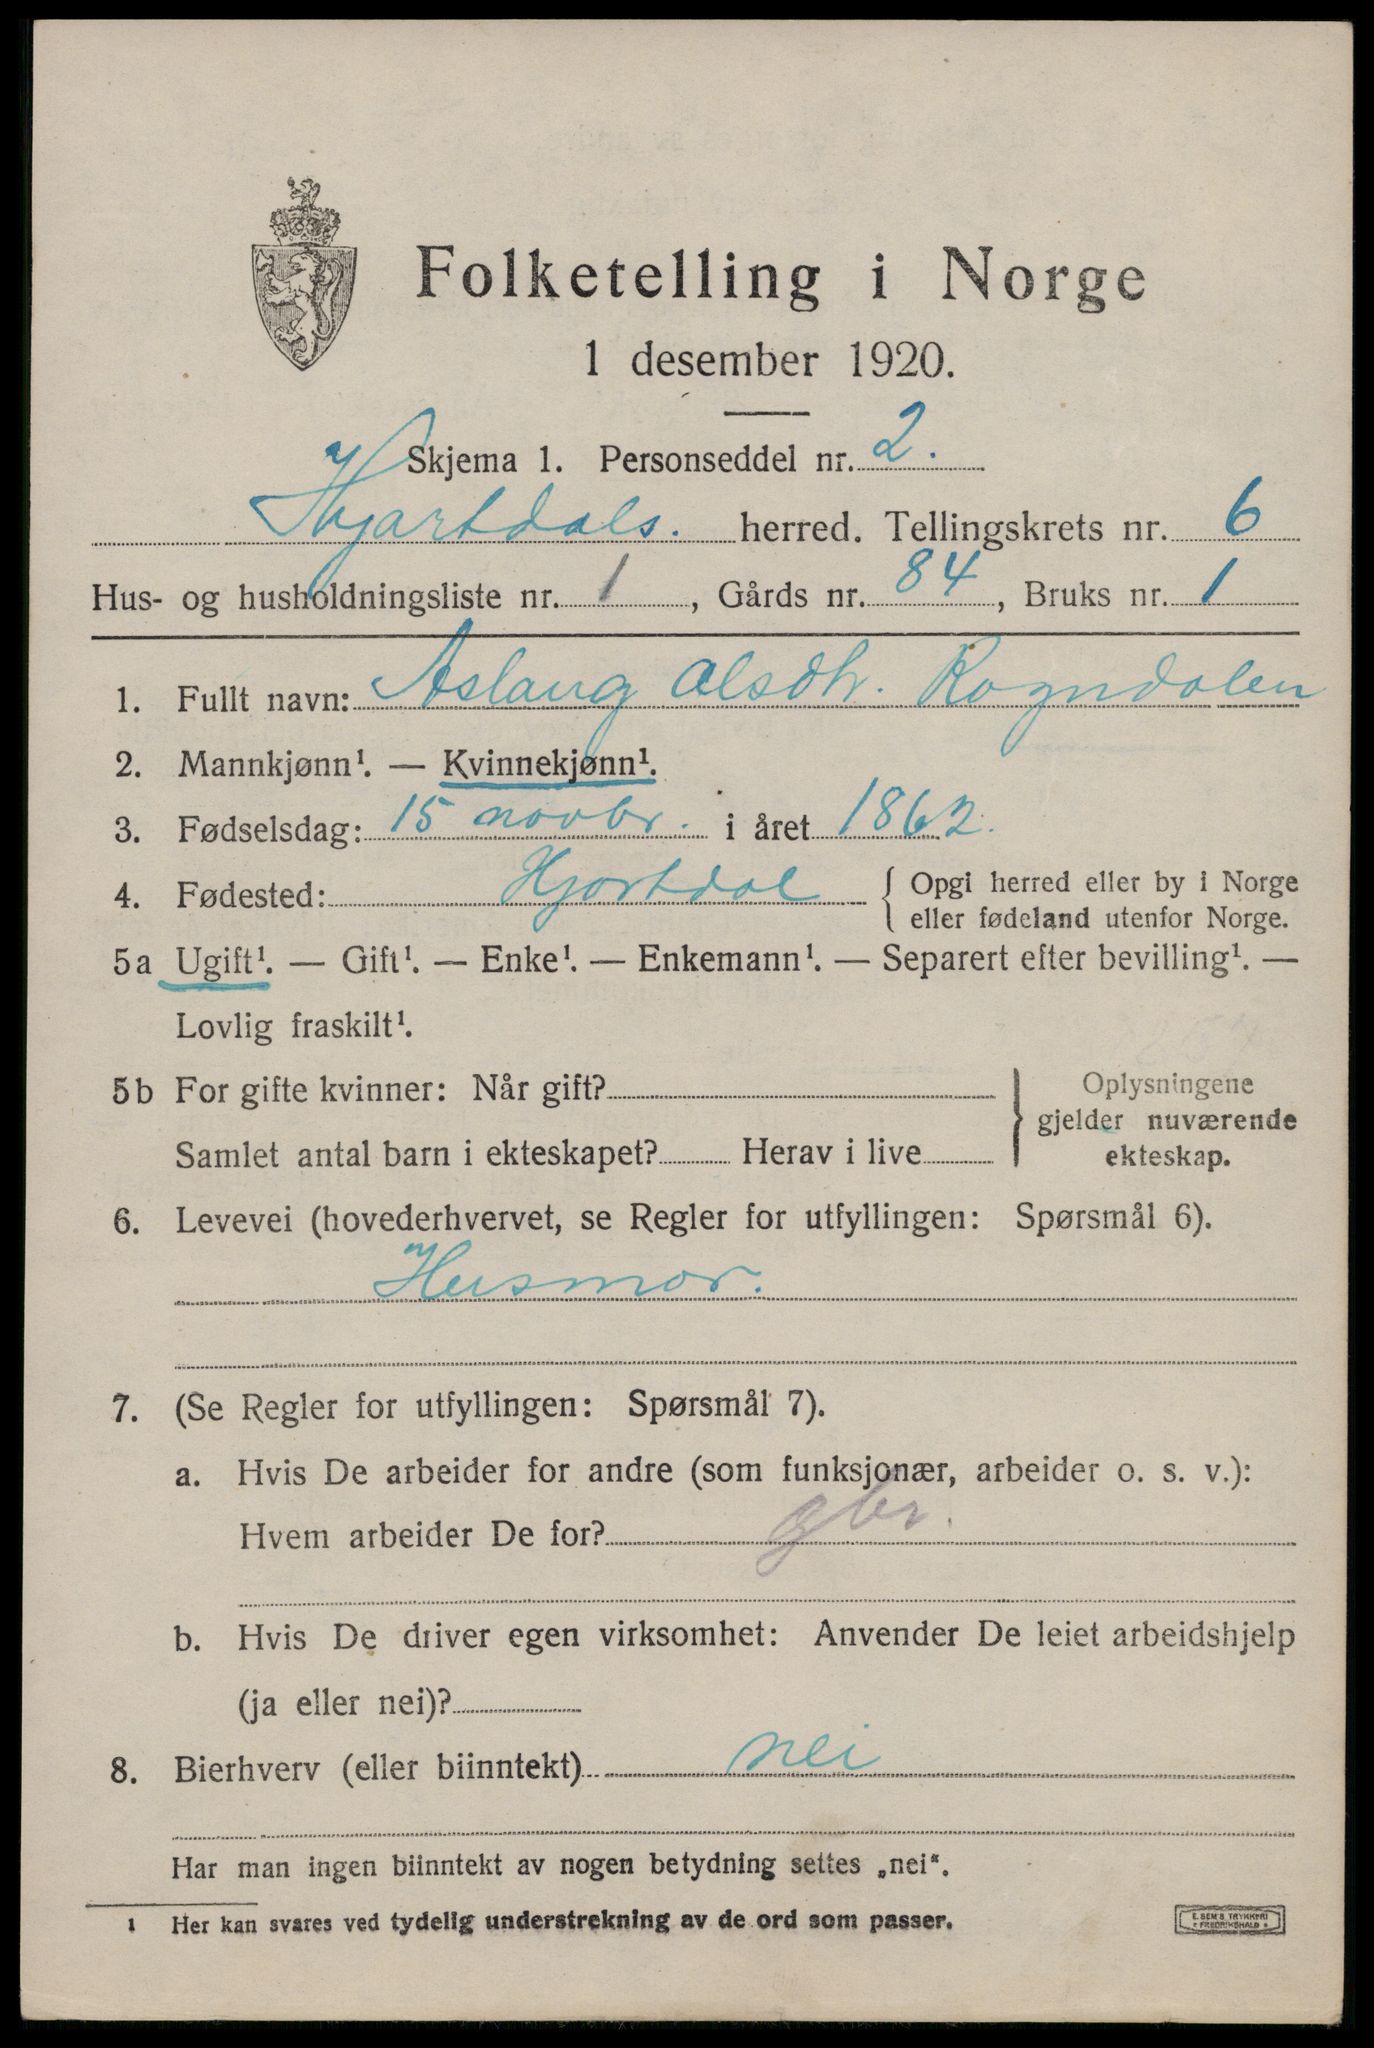 Folketelling i Norge
1 desember 1920.
Skjema 1. Personseddel nr. 2.
Hjartdals. herred. Tellingskrets nr. 6
Hus- og husholdningsliste nr. 1, Gårds nr. 84, Bruks nr. 1
1. Fullt navn: Aslaug Olsdtr. Rogndalen
2. Mannkjønn¹. — Kvinnekjønn¹.
3. Fødselsdag: 15 novbr. i året 1862.
4. Fødested: Hjartdal { Opgi herred eller by i Norge
eller fødeland utenfor Norge.
5a Ugift¹. — Gift¹. — Enke¹. — Enkemann¹. — Separert efter bevilling¹. —
Lovlig fraskilt¹.
5b For gifte kvinner: Når gift?
Samlet antal barn i ekteskapet? Herav i live
} Oplysningene
gjelder nuværende
ekteskap.
6. Levevei (hovederhvervet, se Regler for utfyllingen: Spørsmål 6).
Husmor.
7. (Se Regler for utfyllingen: Spørsmål 7).
a. Hvis De arbeider for andre (som funksjonær, arbeider o. s. v.):
Hvem arbeider De for? gbr.
b. Hvis De driver egen virksomhet: Anvender De leiet arbeidshjelp
(ja eller nei)?
8. Bierhverv (eller biinntekt) nei
Har man ingen biinntekt av nogen betydning settes „nei“.
1 Her kan svares ved tydelig understrekning av de ord som passer.
E. SEM'S TRYKKERI
• FREDRIKSHALD •